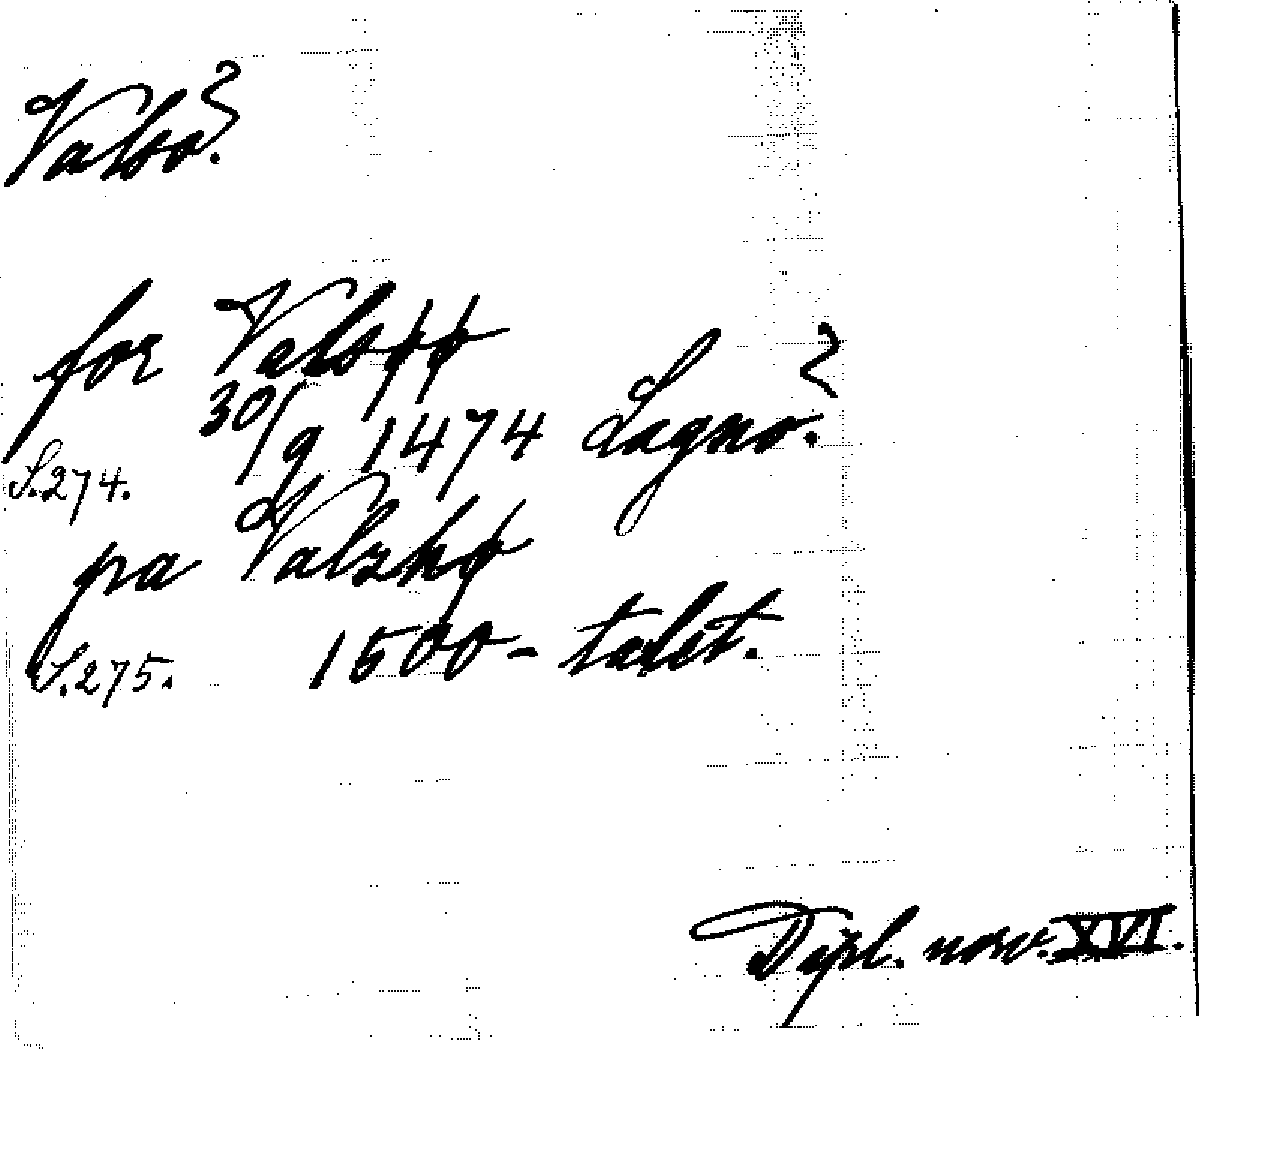 Valsö?
for Valsøø
30/9 1474 Lagnö?
S.274.
pa Valzhø
S.275. 1500-talet.
Dipl. norv. XVI.